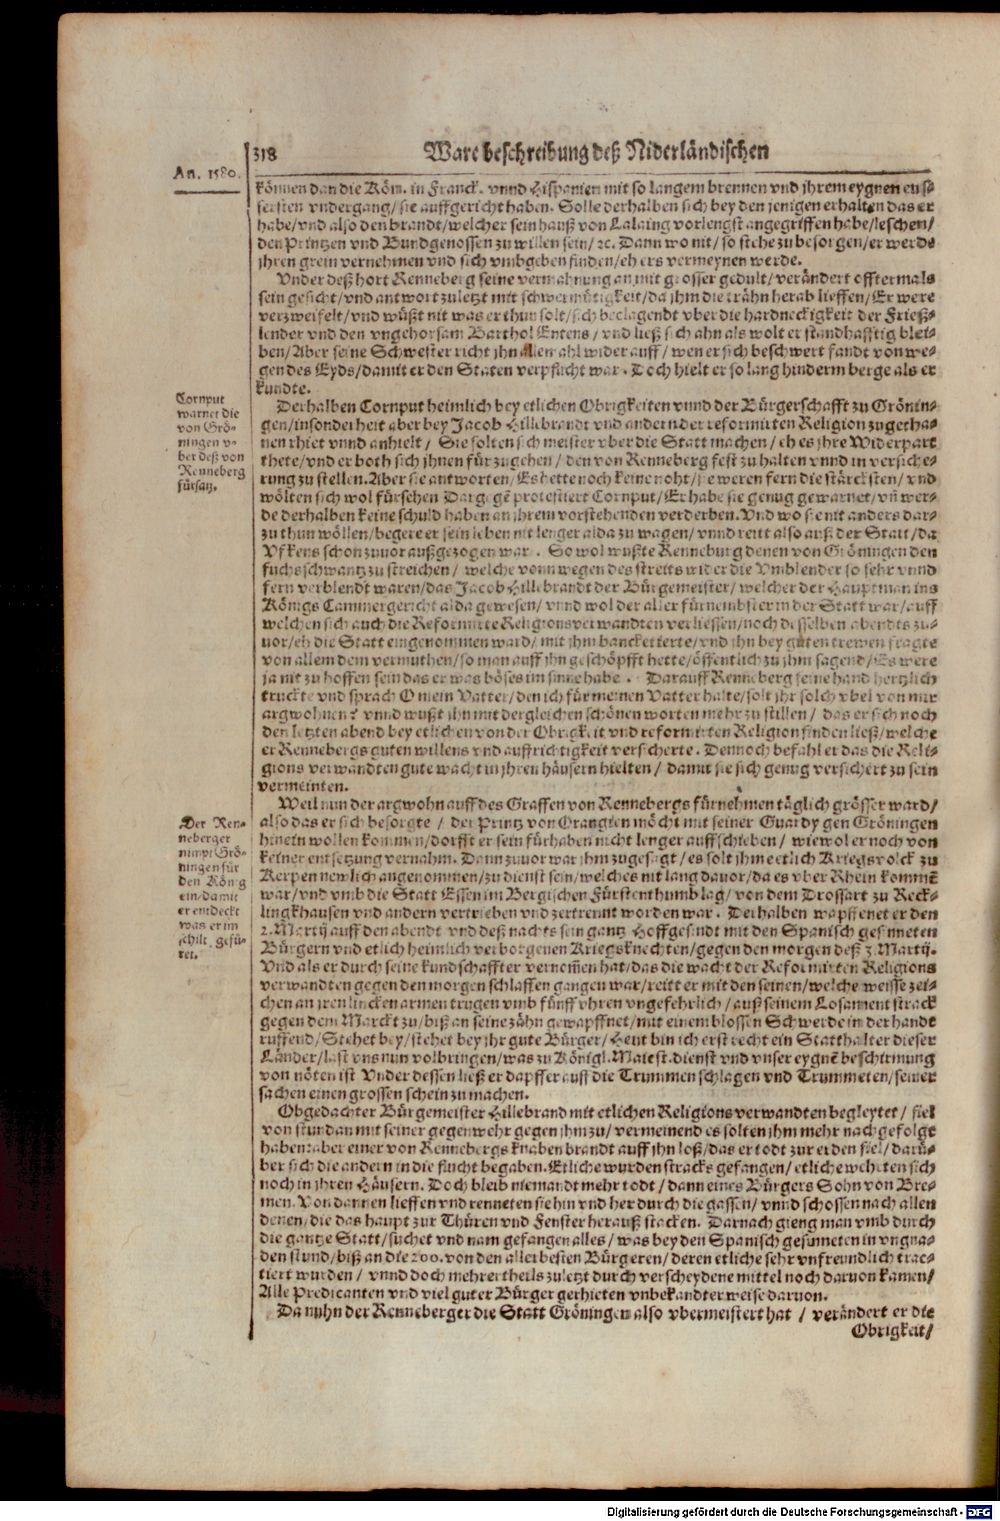 318
Ware beschreibung deß Niderländischen
An. 1580.
können dan die Köni. in Franck. vnnd Hispanien mit so langem brennen vnd jhrem eygnen eus-
sersten vndergang/ sie auffgericht haben. Solle derhalben sich bey den jenigen erhalten das er
habe/ vnd also den brandt/ welcher sein hauß von Lalaing vorlengst angegriffen habe/ leschen/
den Printzen vnd Bundgenossen zu willen sein/ ꝛc. Dann wo nit/ so stehe zu besorgen/ er werde
jhren grein vernehmen vnd sich vmbgeben finden/ eh ers vermeynen werde.
Vnder deß hort Renneberg seine vermahnung an mit grosser gedult/ verändert offtermals
sein gesicht/ vnd antwort zuletzt mit schwermütigkeit/ da jhm die trähn herab lieffen/ Er were
verzweifelt/ vnd wüßt nit was er thun solt/ sich beclagendt vber die hardneckigkeit der Frieß-
lender vnd den vngehorsam Barthol Entens/ vnd ließ sich ahn als wolt er standhafftig blei-
ben/ Aber seine Schwester richt jhn allemahl wider auff/ wen er sich beschwert fandt von we-
gen des Eyds/ damit er den Staten verpflicht war. Doch hielt er so lang hinderm berge als er
kundte.
Cornput
warnet die
von Grö-
ningen v-
ber deß von
Renneberg
fürsatz.
Derhalben Cornput heimlich bey etlichen Obrigkeiten vnnd der Bürgerschafft zu Grönin-
gen/ insonderheit aber bey Jacob Hillebrandt vnd andern der reformirten Religion zugetha-
nen rhiet vnnd anhielt/ Sie solten sich meister vber die Statt machen/ eh es jhre Widerpart
thete/ vnd er both sich jhnen fürzugehen/ den von Renneberg fest zu halten vnnd in versiche-
rung zu stellen. Aber sie antworten/ Es hette noch keine noht/ sie weren fern die stärcksten/ vnd
wölten sich wol fürsehen Dargegē protestiert Cornput/ Er habe sie genug gewarnet/ vn̄ wer-
de derhalben keine schuld haben an jhrem vorstehenden verderben. Vnd wo sie nit anders dar-
zu thun wöllen/ begere er sein leben nit lenger alda zu wagen/ vnnd reitt also auß der Statt/ da
Vfkens schon zuvor außgezogen war. So wol wußte Renneburg denen von Gröningen den
fuchsschwantz zu streichen/ welche vonn wegen des streits wider die Vmblender so sehr vnnd
fern verblendt waren/ das Jacob Hillebrandt der Bürgemeister/ welcher der Hauptman ins
Königs Cammergericht alda gewesen/ vnnd wol der aller fürnembster in der Statt war/ auff
welchen sich auch die Reformirte Religionsverwandten verliessen/ noch desselben abendts zu-
vor/ eh die Statt eingenommen ward/ mit jhm banckettierte/ vnd jhn bey guten trewen fragte
von allem dem vermuthen/ so man auff jhn geschöpfft hette/ öffentlich zu jhm sagend/ Es were
ja nit zu hoffen sein das er was böses im sinne habe. Darauff Renneberg seine hand hertzlich
truckte vnd sprach O mein Vatter/ den ich für meinen Vatter halte/ solt jhr solch vbel von mir
argwohnen? vnnd wußt jhn mit dergleichen schönen worten mehr zu stillen/ das er sich noch
den letzten abend bey etlichen von der Obrigkeit vnd reformirten Religion finden ließ/ welche
er Rennebergs guten willens vnd auffrichtigkeit versicherte. Dennoch befahl er das die Reli-
gions verwandten gute wacht in jhren häusern hielten/ damit sie sich genug versichert zu sein
vermeinten.
Der Ren-
neberger
nimpt Grö-
ningen für
den König
ein/ damit
er entdeckt
was er im
schilt gefü-
ret.
Weil nun der argwohn auff des Graffen von Rennebergs fürnehmen täglich grösser ward/
also das er sich besorgte/ der Printz von Orangien möcht mit seiner Guardy gen Gröningen
hinein wollen kommen/ dorfft er sein fürhaben nicht lenger auffschieben/ wiewol er noch von
keiner entsetzung vernahm. Dann zuvor war jhm zugesagt/ es solt jhme etlich Kriegsvolck zu
Kerpen newlich angenommen/ zu dienst sein/ welches nit lang davor/ da es vber Rhein kommē
war/ vnd vmb die Statt Essen im Bergischen Fürstenthumb lag/ von dem Drossart zu Reck-
lingkhausen vnd andern vertrieben vnd zertrennt worden war. Derhalben wapffenet er den
2. Martij auff den abendt vnd deß nachts sein gantz Hoffgesindt mit den Spanisch gesinneten
Bürgern vnd etlich heimlich verborgenen Kriegsknechten/ gegen den morgen deß 3. Martij.
Vnd als er durch seine kundschaffter vernom̄en hat/ das die wacht der Reformirten Religions
verwandten gegen den morgen schlaffen gangen war/ reitt er mit den seinen/ welche weisse zei-
chen an jren lincken armen trugen vmb fünff vhren vngefehrlich/ auß seinem Losament strack
gegen dem Marckt zu/ biß an seine zähn gewapffnet/ mit einem blossen Schwerde in der handt
ruffend/ Stehet bey/ stehet bey jhr gute Bürger/ Heut bin ich erst recht ein Statthalter dieser
Länder/ last vns nun volbringen/ was zu Königl. Maiest. dienst vnd vnser eygnē beschirmung
von nöten ist Vnder dessen ließ er dapffer auff die Trummen schlagen vnd Trummeten/ seiner
sachen einen grossen schein zu machen.
Obgedachter Bürgemeister Hillebrand mit etlichen Religions verwandten begleytet/ fiel
von stund an mit seiner gegenwehr gegen jhm zu/ vermeinend es solten jhm mehr nachgefolgt
haben: aber einer von Rennebergs knaben brandt auff jhn loß/ das er todt zur erden fiel/ darü-
ber sich die andern in die flucht begaben. Etliche wurden stracks gefangen/ etliche wehrten sich
noch in jhren Häusern. Doch bleib niemandt mehr todt/ dann eines Bürgers Sohn von Bre-
men. Von dannen lieffen vnd renneten sie hin vnd her durch die gassen/ vnnd schossen nach allen
denen/ die das haupt zur Thüren vnd Fenster herauß stacken. Darnach gieng man vmb durch
die gantze Statt/ suchet vnd nam gefangen alles/ was bey den Spanisch gesinneten in vngna-
den stund/ biß an die 200. von den allerbesten Bürgeren/ deren etliche sehr vnfreundlich trac-
tiert wurden/ vnnd doch mehrertheils zuletzt durch verscheydene mittel noch darvon kamen/
Alle Predicanten vnd viel guter Bürger gerhieten vnbekandter weise darvon.
Da nuhn der Renneberger die Statt Gröningen also vbermeistert hat/ verändert er die
Obrigkeit/
Digitalisierung gefördert durch die Deutsche Forschungsgemeinschaft - DFG